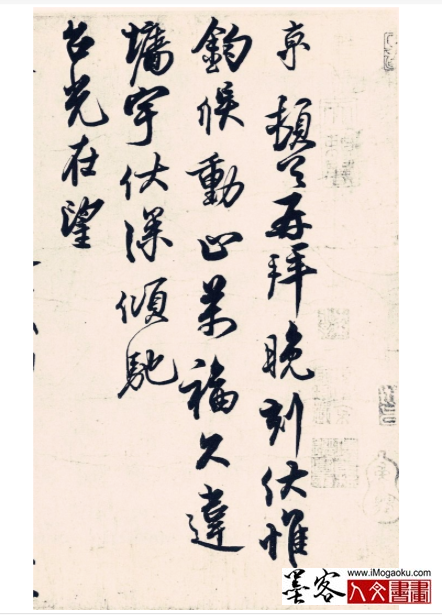 京 頓首再拜晚刻伏惟
鈞候動止萬福久違
墻宇伏深傾馳
台光在望
www.iMogaoku.com
墨客
人文書畫